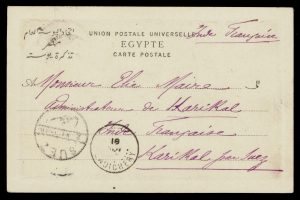 UNION POSTALE UNIVERSELLE
Inde Française
EGYPTE
CARTE POSTALE
تذكرة بوستة
Monsieur Elie Maire
Administrateur de Karikal
Inde Française
Karikal par Suez
SUE
PONDICHERY